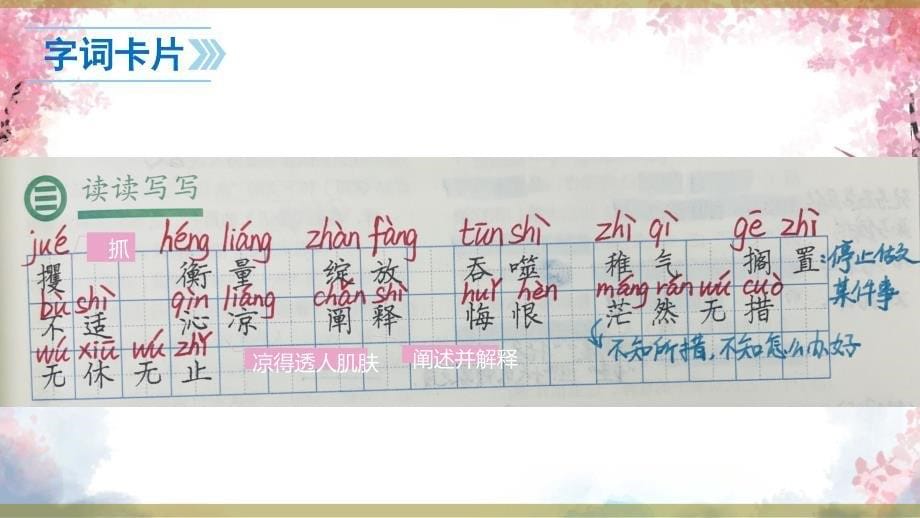 字词卡片
三 读读写写
jué 抓 héng liáng zhàn fàng tūn shì zhì qì gē zhì
攫 衡量 绽放 吞噬 稚气 搁置:停止做文某件事
bù shì qìn liáng chǎn shì huǐ hèn máng rán wú cuò
不适 沁凉 阐释 悔恨 茫然无措
wú xiū wú zhǐ 凉得透人肌肤 阐述并解释 不知所措,不知怎么办好
无休无止